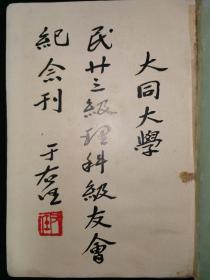 大同大學
民廿三級理科級友會
紀念刊
于右任